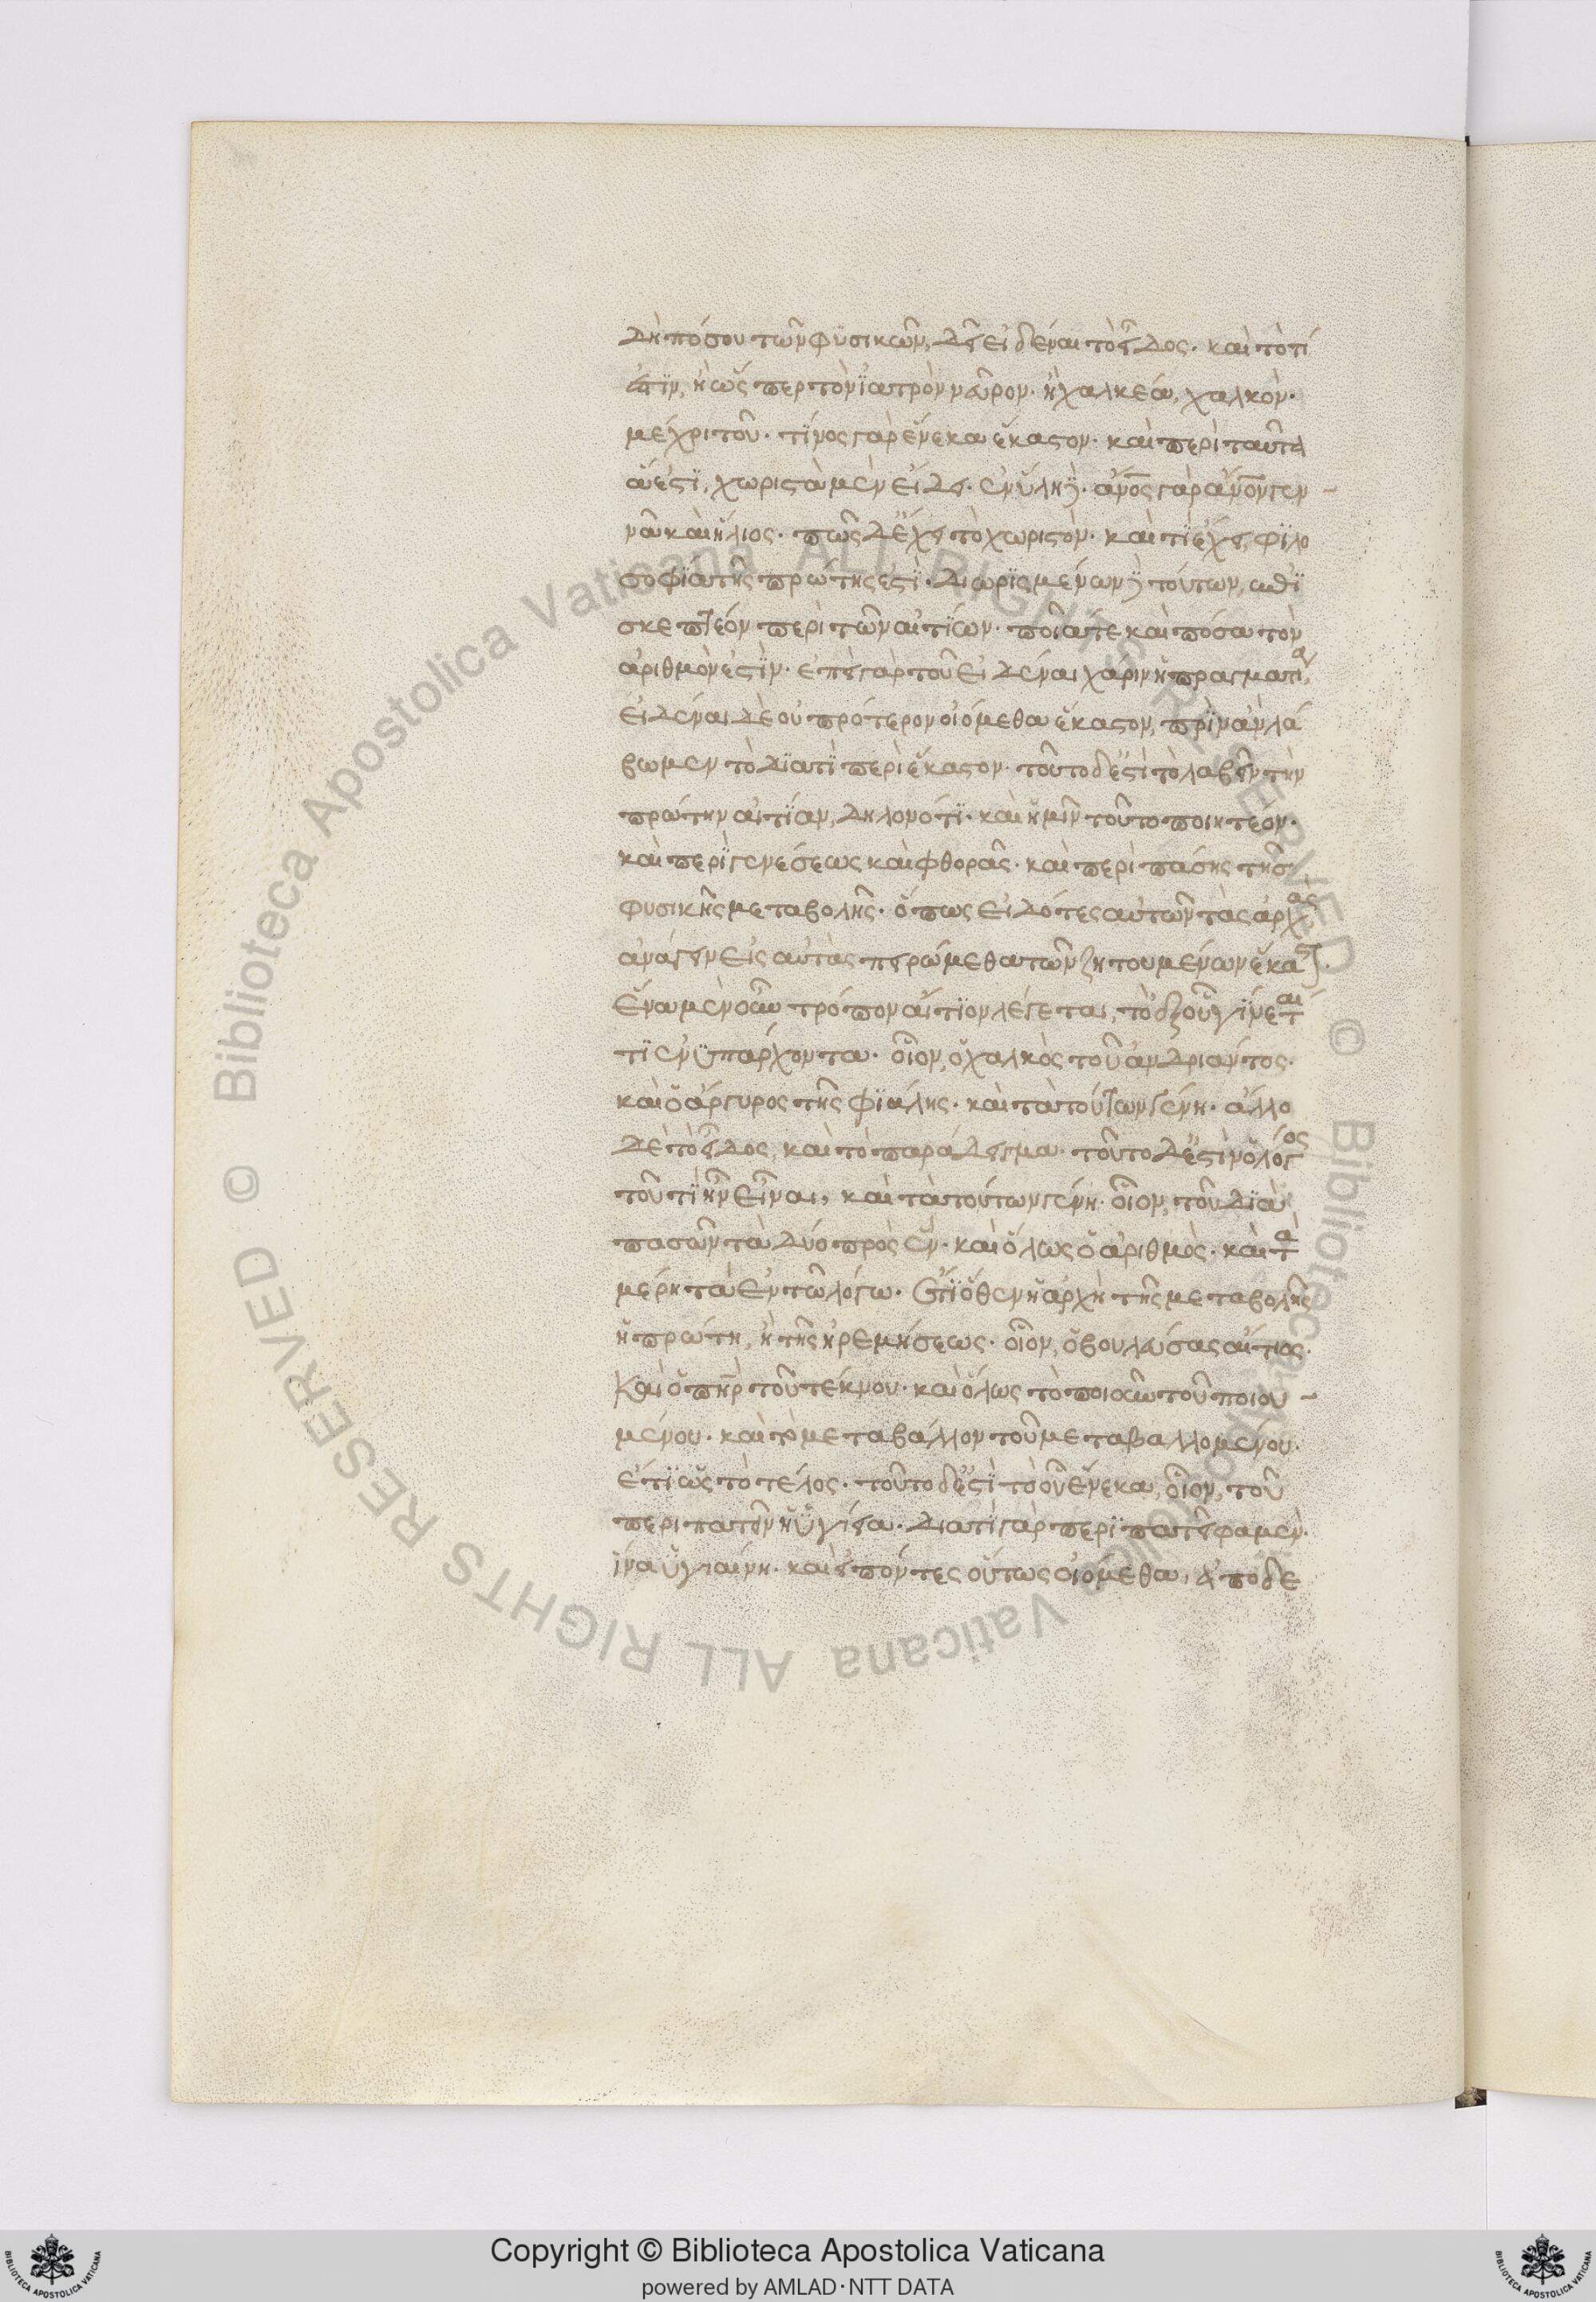 δὴ πόσου τῶν φυσικῶν, δεῖ εἰδέναι τὸ εἶδος. καὶ τὸ τί
ἐστϊν, ἢ ὥσπερ τὸν ἰατρὸν νεῦρον. ἢ χαλκέα, χαλκὸν.
μέχρι τοῦ. τίνος γὰρ ἕνεκα ἕκαστον. καὶ περὶ ταῦτα
ἅ ἐστϊ, χωριστὰ μὲν εἴδει. ἐν ὕλη δ. ἄνος γὰρ ἄνον γεν
νᾶ καὶ ἥλιος. πῶς δ' ἔχει τὸ χωριστὸν. καὶ τί ἐστι, φϊλο
σοφϊα τῆς πρώτης ἐστϊ. διωρϊσμένων δ τούτων,
σκεπτέον περὶ τῶν αἰτϊων. ποῖά τε καὶ πόσα τὸν
ἀριθμὸν ἐστϊν. ἐπεὶ γὰρ τοῦ εἰδέναι χάριν ἡ πραγματία,
εἰδέναι δὲ οὐ πρότερον οἰόμεθα ἕκαστον, πρὶν ἂν λά
βωμεν τὸ διατϊ περὶ ἕκαστον. τοῦτο δ' ἐστὶ τὸ λαβεῖν τὴν
πρώτην αἰτϊαν, δηλονότϊ. καὶ ἡμῖν τοῦτο ποιητέον.
καὶ περὶ γενέσεως καὶ φθορᾶς. καὶ περὶ πάσης τῆς
φυσικῆς μεταβολῆς. ὅπως εἰδότες αὐτῶν τὰς ἀρχάς
ἀνάγειν εἰς αὐτὰς πειρώμεθα τῶν ζητουμένων ἕκαστ.
ἕνα μὲν οὖν τρόπον αἴτϊον λέγεται, τὸ ἐξ οὗ γίνεται
τϊ ἐνϋπάρχοντα. οἷον, ὁ χαλκὸς τοῦ ἀνδριάντος.
καὶ ὁ ἄργυρος τῆς φϊάλης. καὶ τὰ τούτων γένη. ἄλλο
δὲ τὸ εἶδος, καὶ τὸ παράδειγμα. τοῦτο δ' ἐστὶν ὁ λόγος
τοῦ τί ἦν εἶναι, καὶ τὰ τούτων γένη. οἷον, τοῦ δϊὰ
πασῶν τὰ δύο πρὸς ἕν. καὶ ὅλως ὁ ἀριθμὸς. καὶ τὰ
μέρη τὰ ἐν τῶ λόγω. ἔτϊ ὅθεν ἡ ἀρχὴ τῆς μεταβολῆς
ἡ πρώτη, ἢ τῆς ἠρεμήσεως. οἷον, ὁ βουλεύσας αἴτιος.
καὶ ὁ πηρ τοῦ τέκνου. καὶ ὅλως τὸ ποιοῦν τοῦ ποιου
μένου. καὶ τὸ μεταβάλλον τοῦ μεταβαλλομένου.
ἔτϊ ὡς τὸ τέλος. τοῦτο δ' ἐστϊ τὸ οὗ ἕνεκα, οἷον, τοῦ
περιπατεῖν ἡ ὑγίεια. διατί γὰρ περϊπατεῖ φαμεν.
ἵνα ὑγιαίνη. καὶ εἰπόντες οὕτως οἰόμεθα, ἀποδε
Copyright © Biblioteca Apostolica Vaticana
powered by AMLAD·NTT DATA